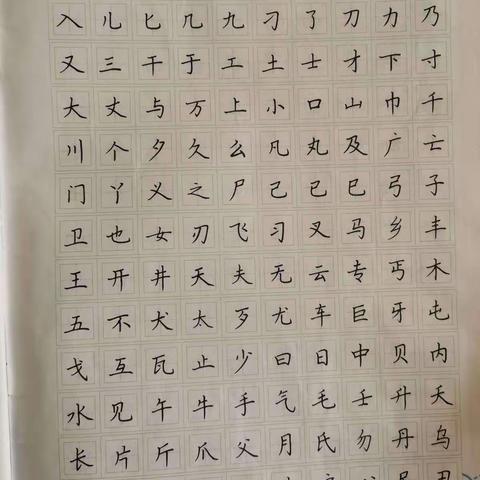 入儿匕几九刁了刀力乃
又三干于工土士才下寸
大丈与万上小口山巾千
川个夕久么凡丸及广亡
门丫义之尸己已巳弓子
卫也女刃飞习叉马乡丰
王开井天夫无云专丐木
五不犬太歹尤车巨牙屯
戈互瓦止少曰日中贝内
水见午牛手气毛壬升夭
长片斤爪父月氏勿丹乌